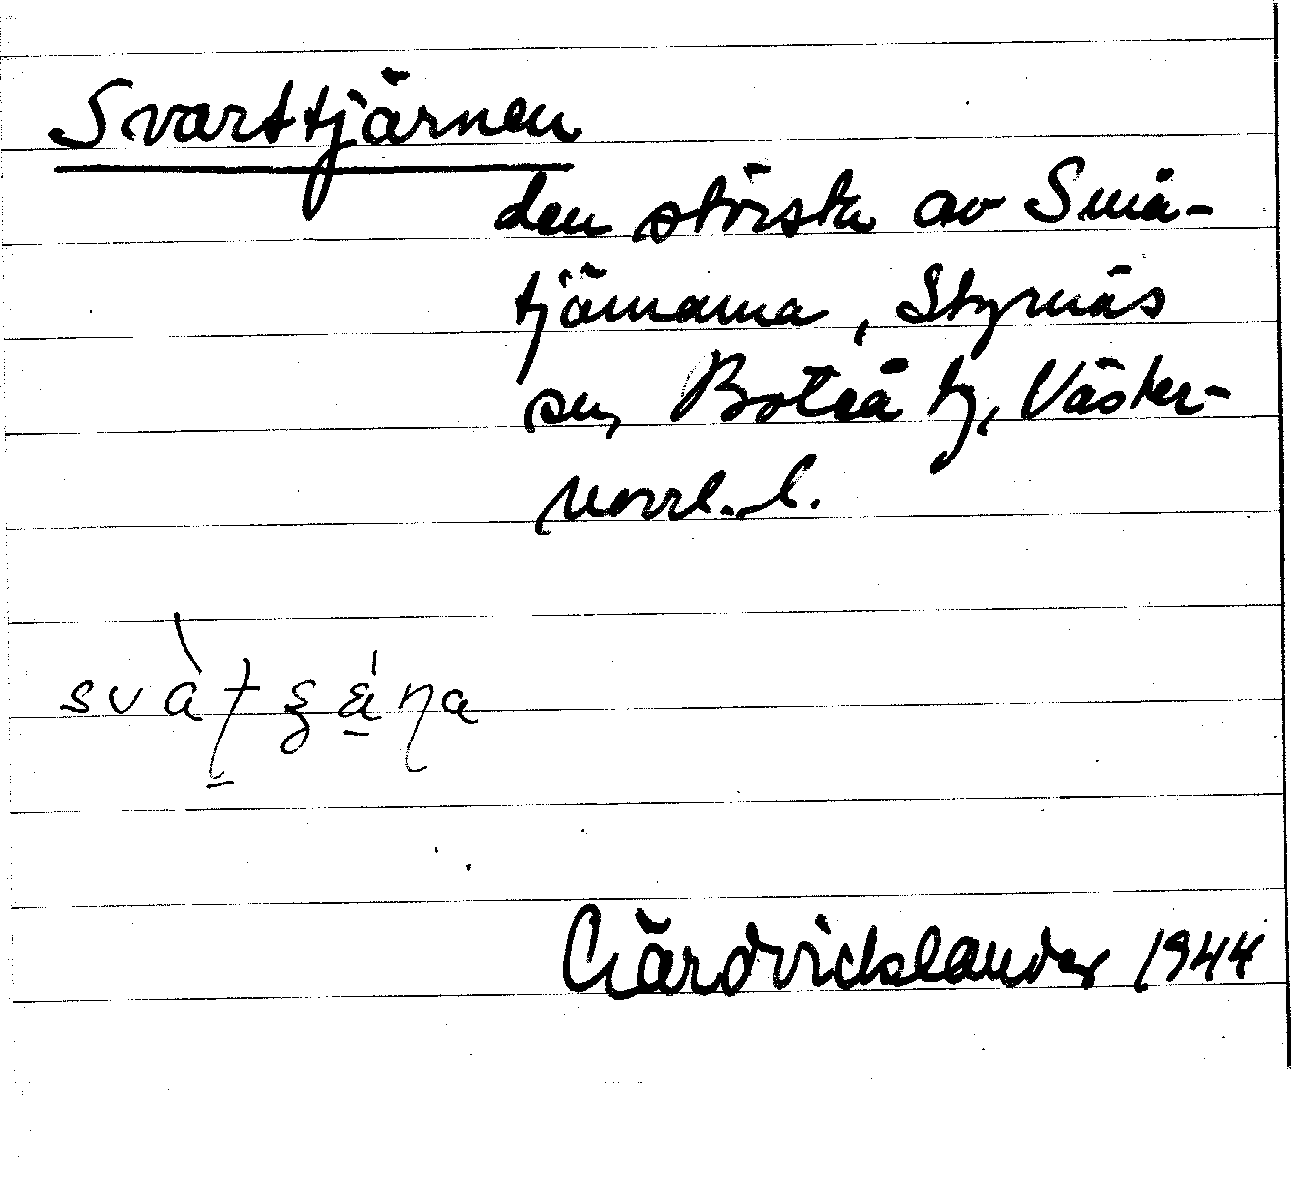 Svarttjärnen
den största av Små-
tjärnarna, Styrnäs
sn, Boteå tg, Väster-
norrl. l.
Gärdvickslander 1944